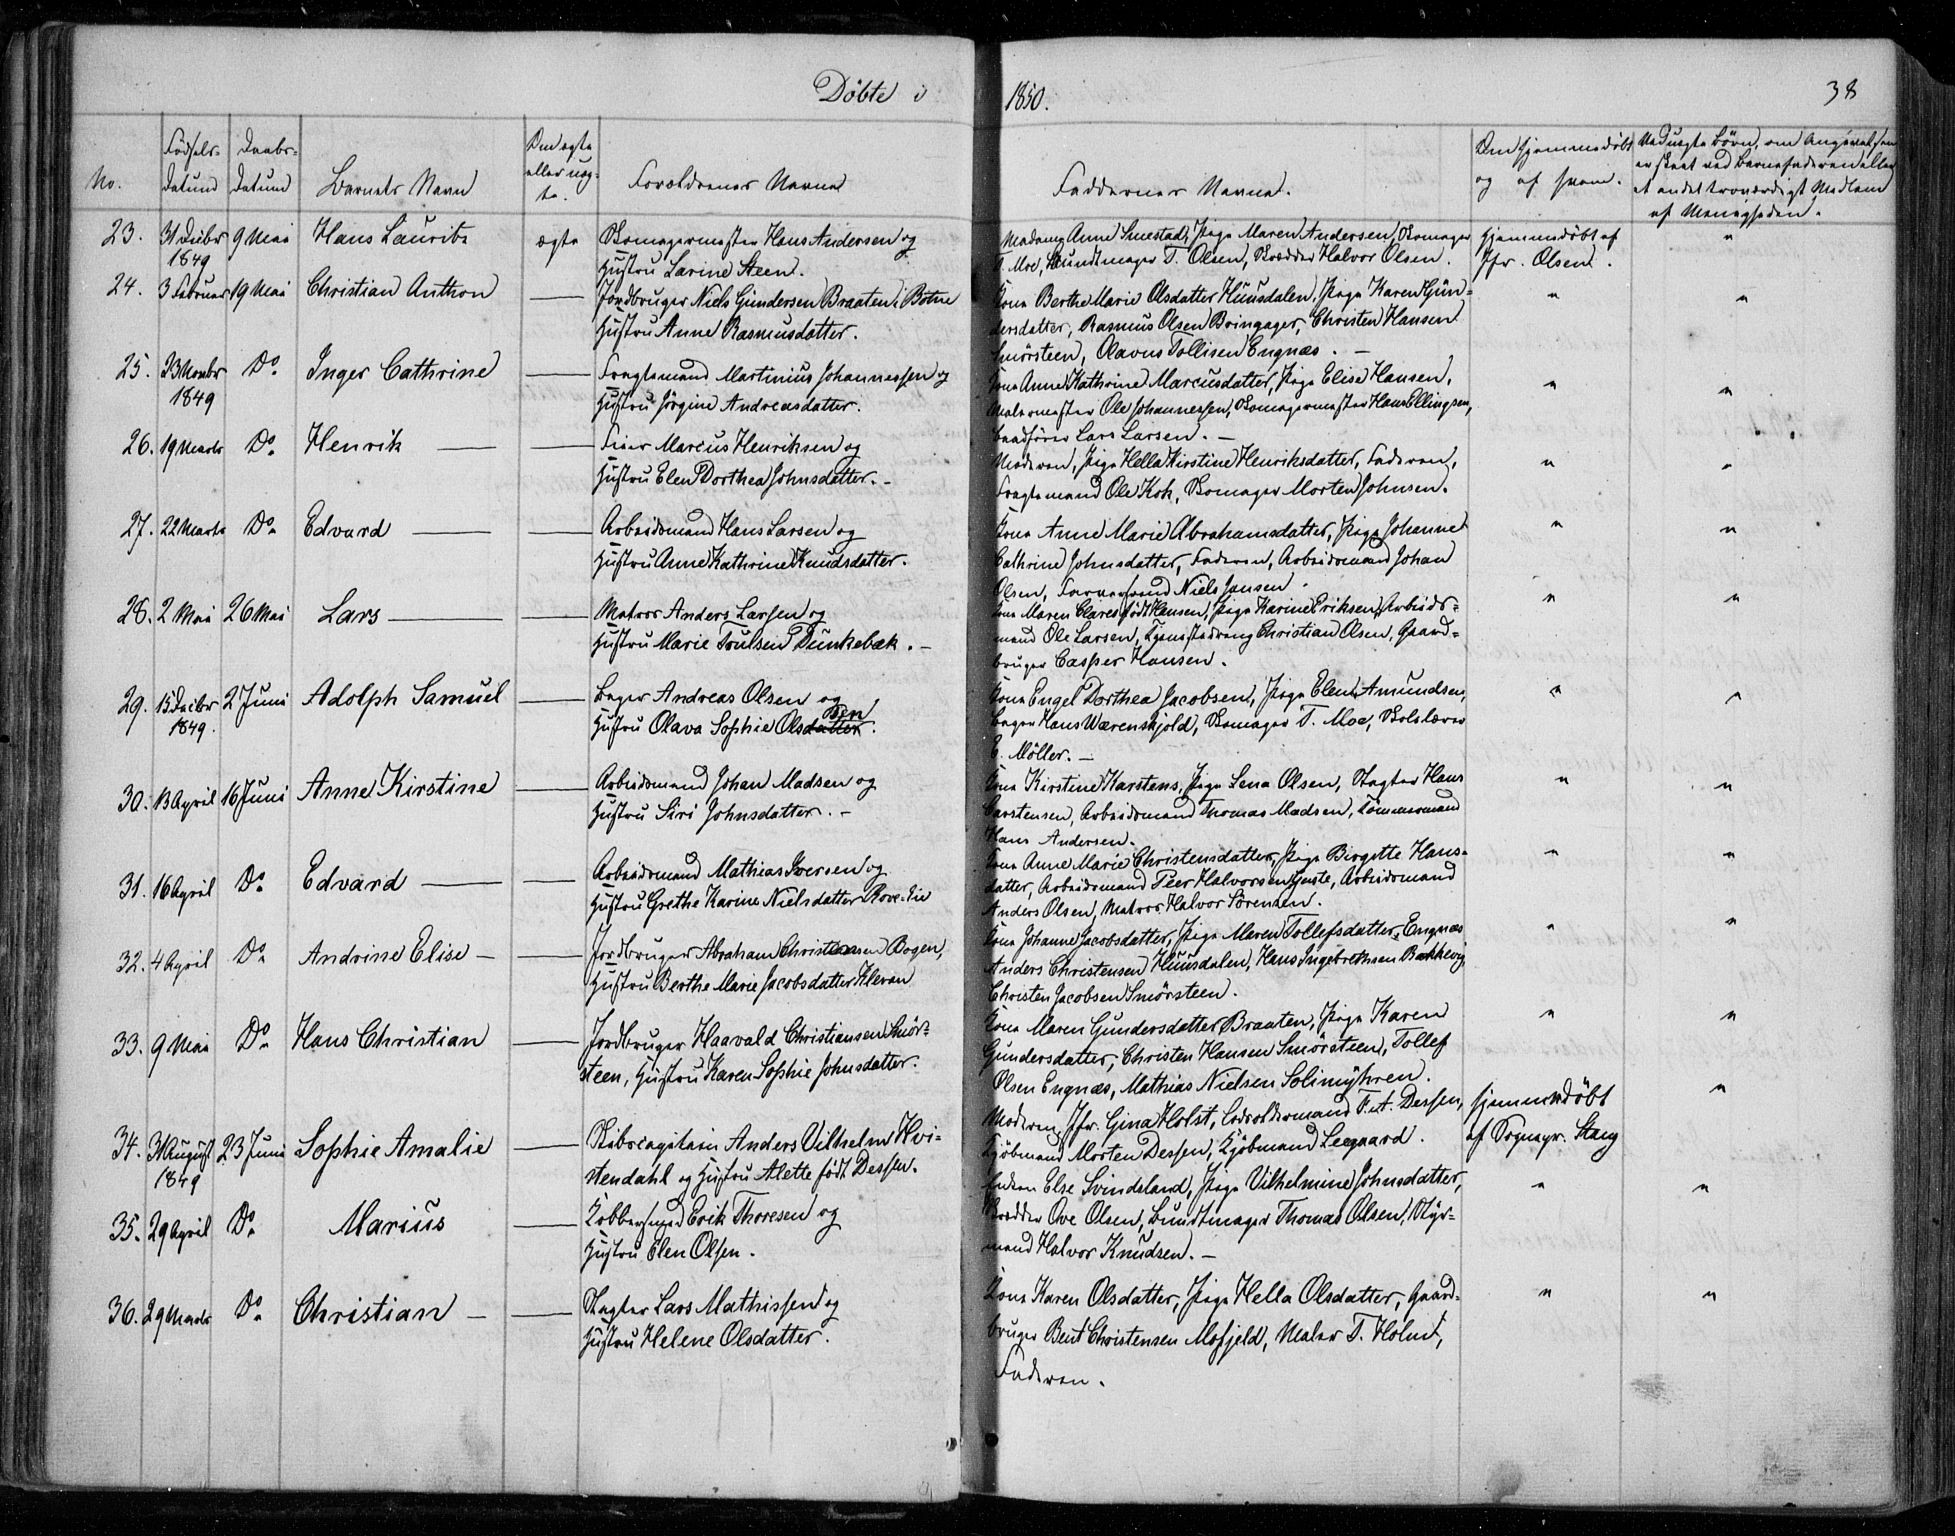 Döbte i 1850. 38
No. Fødsels- Datum Daabs- Datum Barnets Navn Om ægte eller uæg- te. Forældrenes Navne Faddernes Navne. Om hjemmedøbt og af hvem. Ved uægte Børn, om Angivelsen er skeet ved Barnefaderen eller et andet troværdigt Medlem af Menigheden.
23. 31 Decbr 1849 9 Mai Hans Laurits ægte Skomagermester Hans Andersen og
Hustru Larine Steen.
Madame Anne Smestad, Pige Maren Andersen, Skomager
T. Moe, Bundtmager T. Olsen, Skrædder Halvor Olsen.
Hjemmedøbt af
Jfr. Olsen. "
24. 3 Februar 19 Mai Christian Anthon — Jordbruger Niels Gundersen Braaten i Botne
Hustru Anne Rasmusdatter.
Kone Berthe Marie Olsdatter Huusdalen, Pige Karen Gun-
dersdatter, Rasmus Olsen Bringager, Christen Hansen
Smörsteen, Olavus Tollisen Engnæs. — " "
25. 23 Novbr 1849 Do. Inger Cathrine — Fragtemand Martinius Johannessen og
Hustru Jörgine Andreasdatter.
Kone Anne Kathrine Marcusdatter, Pige Elise Hansen,
Malermester Ole Johannessen, Skomagermester Hans Ellingsen,
Baadfører Lars Larsen. — " "
26. 19 Marts Do. Henrik — — Feier Marcus Henriksen og
Hustru Elen Dorthea Johnsdatter. -
Moderen, Pige Hella Kirstine Henriksdatter, Faderen,
Fragtemand Ole Koh, Skomager Morten Johnsen. " "
27. 22 Marts Do. Edvard — — Arbeidsmand Hans Larsen og
Hustru Anne Kathrine Knudsdatter.
Kone Anne Marie Abrahamsdatter, Pige Johanne
Cathrine Johnsdatter, Faderen, Arbeidsmand Johan
Olsen, Niels Jansen. " "
28. 2 Mai 26 Mai Lars — — Matros Anders Larsen og
Hustru Marie Trulsen Dunkebæk. —
Kone Maren Clares født Hansen, Pige Karine Eriksen, Arbeids-
mand Ole Larsen, Tjenestedreng Christian Olsen, Gaard-
bruger Casper Hansen. " "
29. 15 Decbr 1849. 2 Juni Adolph Samuel — Bager Andreas Olsen og
Hustru Olava Sophie Olsdatter sen.
Kone Engel Dorthea Jacobsen, Pige Elen Amundsen,
Bager Hans Wærenskjold, Skomager T. Moe, Skolelærer
E. Möller. — " "
30. 13 April 16 Juni Anne Kirstine — Arbeidsmand Johan Madsen og
Hustru Siri Johnsdatter. -
Kone Kirstine Karstens, Pige Lena Olsen, Slagter Hans
Carstensen, Arbeidsmand Thomas Madsen, Tömmermand
Hans Andersen. " "
31. 16 April Do. Edvard — — Arbeidsmand Mathias Iversen og
Hustru Grethe Karine Nielsdatter Rove-
Kone Anne Marie Christensdatter, Pige Birgitte Hans-
datter, Arbeidsmand Peer Halvorsen, Arbeidsmand
Anders Olsen, Matros Halvor Sörensen. " "
32. 4 April Do. Andrine Elise — — Jordbruger Abraham Christensen Bogen,
Hustru Berthe Marie Jacobsdatter Kleven
Kone Johanne Jacobsdatter, Pige Maren Tollefsdatter Engnæs
Anders Christensen Huusdalen, Hans Ingebrethsen Bakkevig,
Christen Jacobsen Smörsteen. " "
33. 9 Mai Do. Hans Christian — Jordbruger Haavald Christiansen Smör-
steen, Hustru Karen Sophie Johnsdatter.
Kone Maren Gundersdatter Braaten, Pige Karen
Gundersdatter, Christen Hansen Smörsteen, Tollef
Olsen Engnæs, Mathias Nielsen Solimyhren. " "
34. 31 August 1849 23 Juni Sophie Amalie — Skibscapitain Anders Vilhelm Hvi-
stendahl og Hustru Alette født Dessen.
Moderen, Jfr. Gina Holst, Lodsoldermand Dessen,
Kjöbmand Morten Dessen, Kjöbmand Leegaard.
Hjemmedøbt
af Sognepr. Stang "
35. 29 April Do. Marius — Kobberslager Erik Thoresen og
Hustru Elen Olsen.
Enken Else Svindsland, Pige Vilhelmine Johnsdatter,
Skrædder Ove Olsen, Bundtmager Thomas Olsen, Styr-
mand Halvor Knudsen. — " "
36. 29 Marts Do. Christian — — Slagter Lars Mathissen og
Hustru Helene Olsdatter.
Kone Karen Olsdatter, Pige Hella Olsdatter, Gaard-
bruger Bent Christensen Mofjeld, Maler T. Holmt,
Faderen. " "